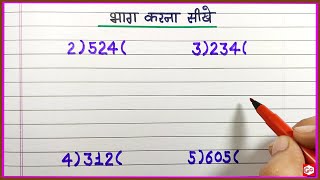 भाग करना सीखे
2)524( 3)234(
4)312( 5)605(